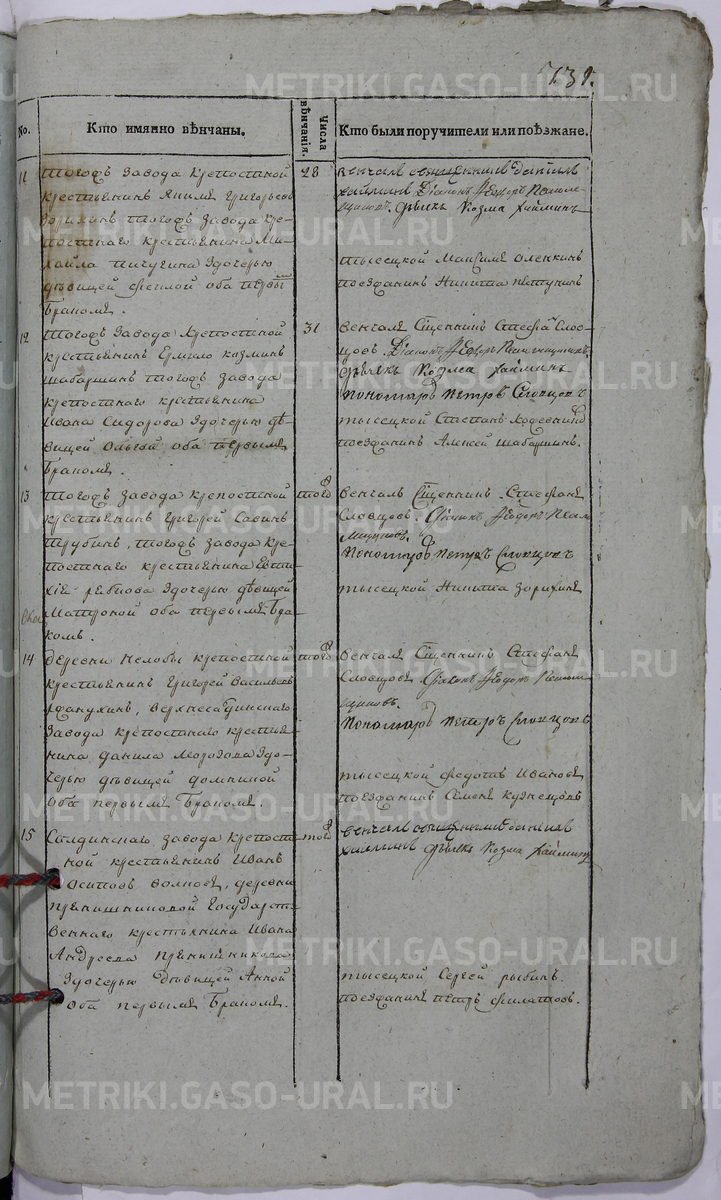 731.
No.
Кто имянно вѣнчаны.
Числа вѣнчанiя.
Кто были поручители или поѣзжане.
11
тогожъ завода крепостной
крестьянинъ Якимъ Григорьевъ
Зорихинъ тогожъ завода кре-
постнаго крестьянина Ми-
хайла Пичугина здочерью
дѣвицей Феклой оба первы
бракомъ.
28
венчалъ священникъ Данiилъ
Хайминъ Дiаконъ Ѳедоръ
дьячекъ Козма Хайминъ
тысецкой Максимъ Оленкинъ
поезжанинъ Никита Петунинъ
12
тогожъ завода крепостной
крестьянинъ Ермило Козминъ
Шабаршинъ тогожъ завода
крепостнаго крестьянина
Ивана Сидорова здочерью дѣ-
вицей Ольгой оба первымъ
бракомъ.
31
венчалъ Сщенникъ Стефанъ Слов-
цовъ Дiаконъ Ѳедоръ
дьячекъ Козма Хайминъ
Пономарь Петръ Словцовъ
тысецкой Степанъ
поезжанинъ Алексей Шабаршинъ.
13
тогожъ завода крепостной
крестьянинъ Григорей Савинъ
Трубинъ, тогожъ завода кре-
постнаго крестьянина Евти-
хiя Рябкова здочерью дѣвицей
Матроной оба первымъ бра-
комъ.
тогожъ
венчалъ Сщенникъ Стефанъ
Словцовъ. Дiаконъ Ѳедоръ
Пономарь Петръ Словцовъ
тысецкой Никита Зорихинъ
14
деревни Нелобы крепостной
крестьянинъ Григорей Васильевъ
верхнесалдинскаго
завода крепостнаго крестья-
нина Данила Морозова здо-
черью дѣвицей Домникой
оба первымъ бракомъ.
тогожъ
венчалъ Сщенникъ Стефанъ
Словцовъ Дiаконъ Ѳедоръ
Пономарь Петръ Словцовъ
тысецкой Федотъ Ивановъ
поезжанинъ Семенъ Кузнецовъ
15
Салдинскаго завода крепост-
ной крестьянинъ Иванъ
Осиповъ Волковъ, деревни
Прянишниковой государст-
веннаго крестьянина Ивана
Андреева Прянишникова
здочерью дѣвицей Анной
оба первымъ бракомъ.
тогожъ
венчалъ священникъ Данiилъ
Хайминъ дьячекъ Козма Хайминъ
тысецкой Сергей Рыбинъ.
поезжанинъ Петръ Филатовъ.
METRIKI.GASO-URAL.RU